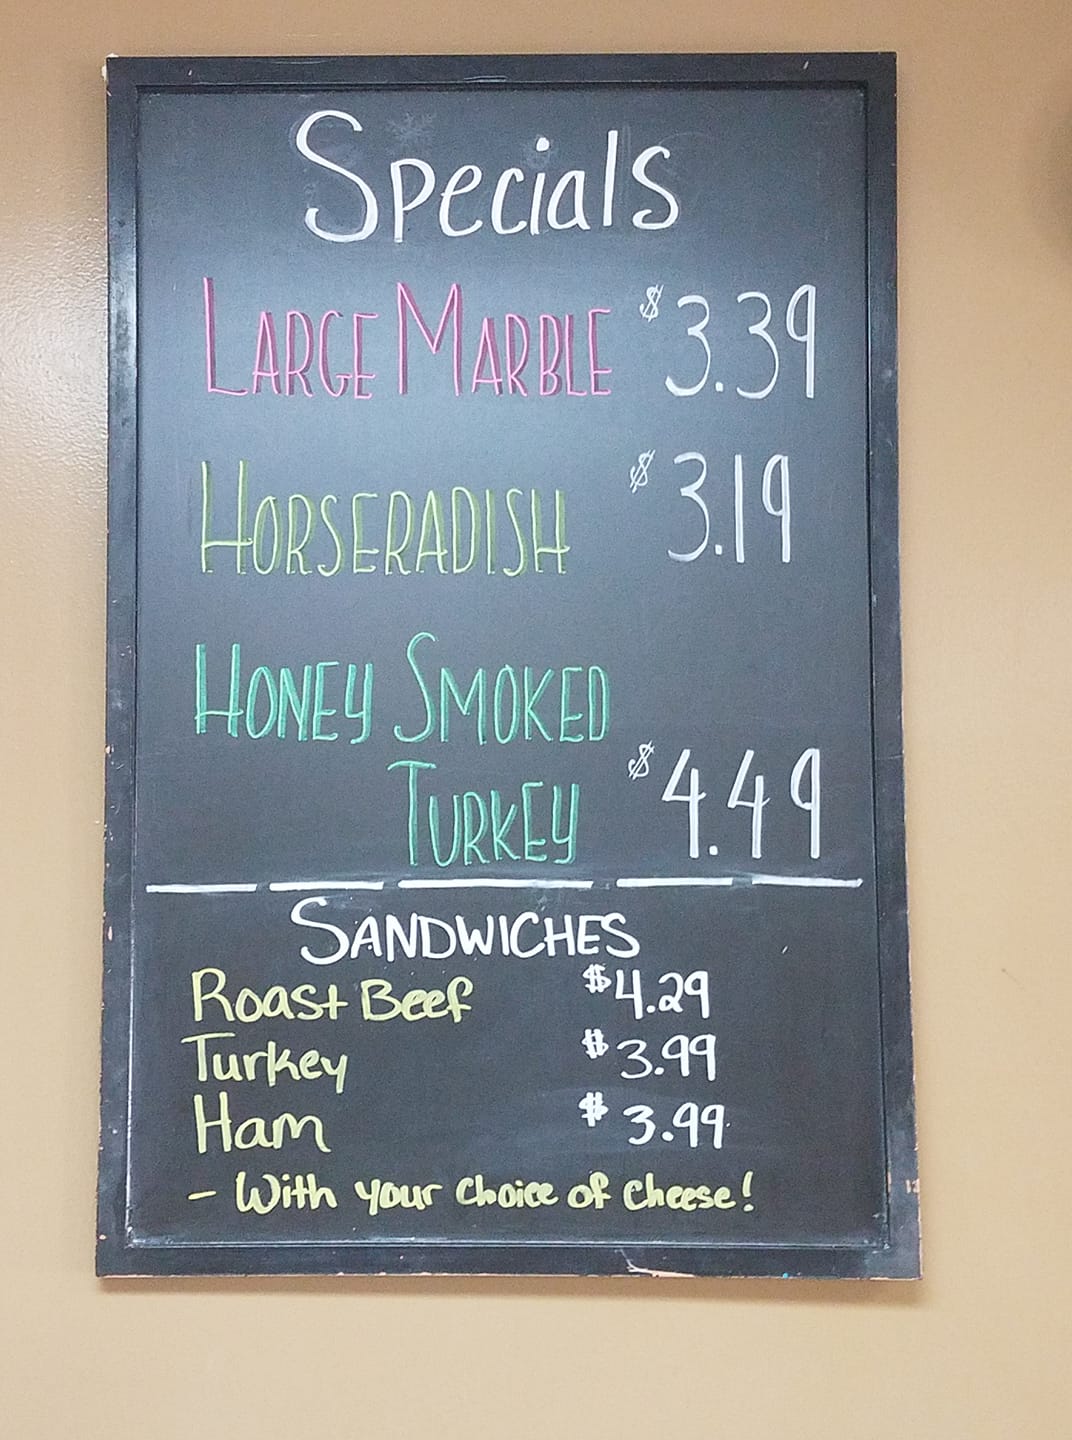 Specials
LARGE MARBLE $3.39
HORSERADISH $3.19
HONEY SMOKED
TURKEY $4.49
SANDWICHES
Roast Beef $4.29
Turkey $3.99
Ham $3.99
- With your choice of cheese!